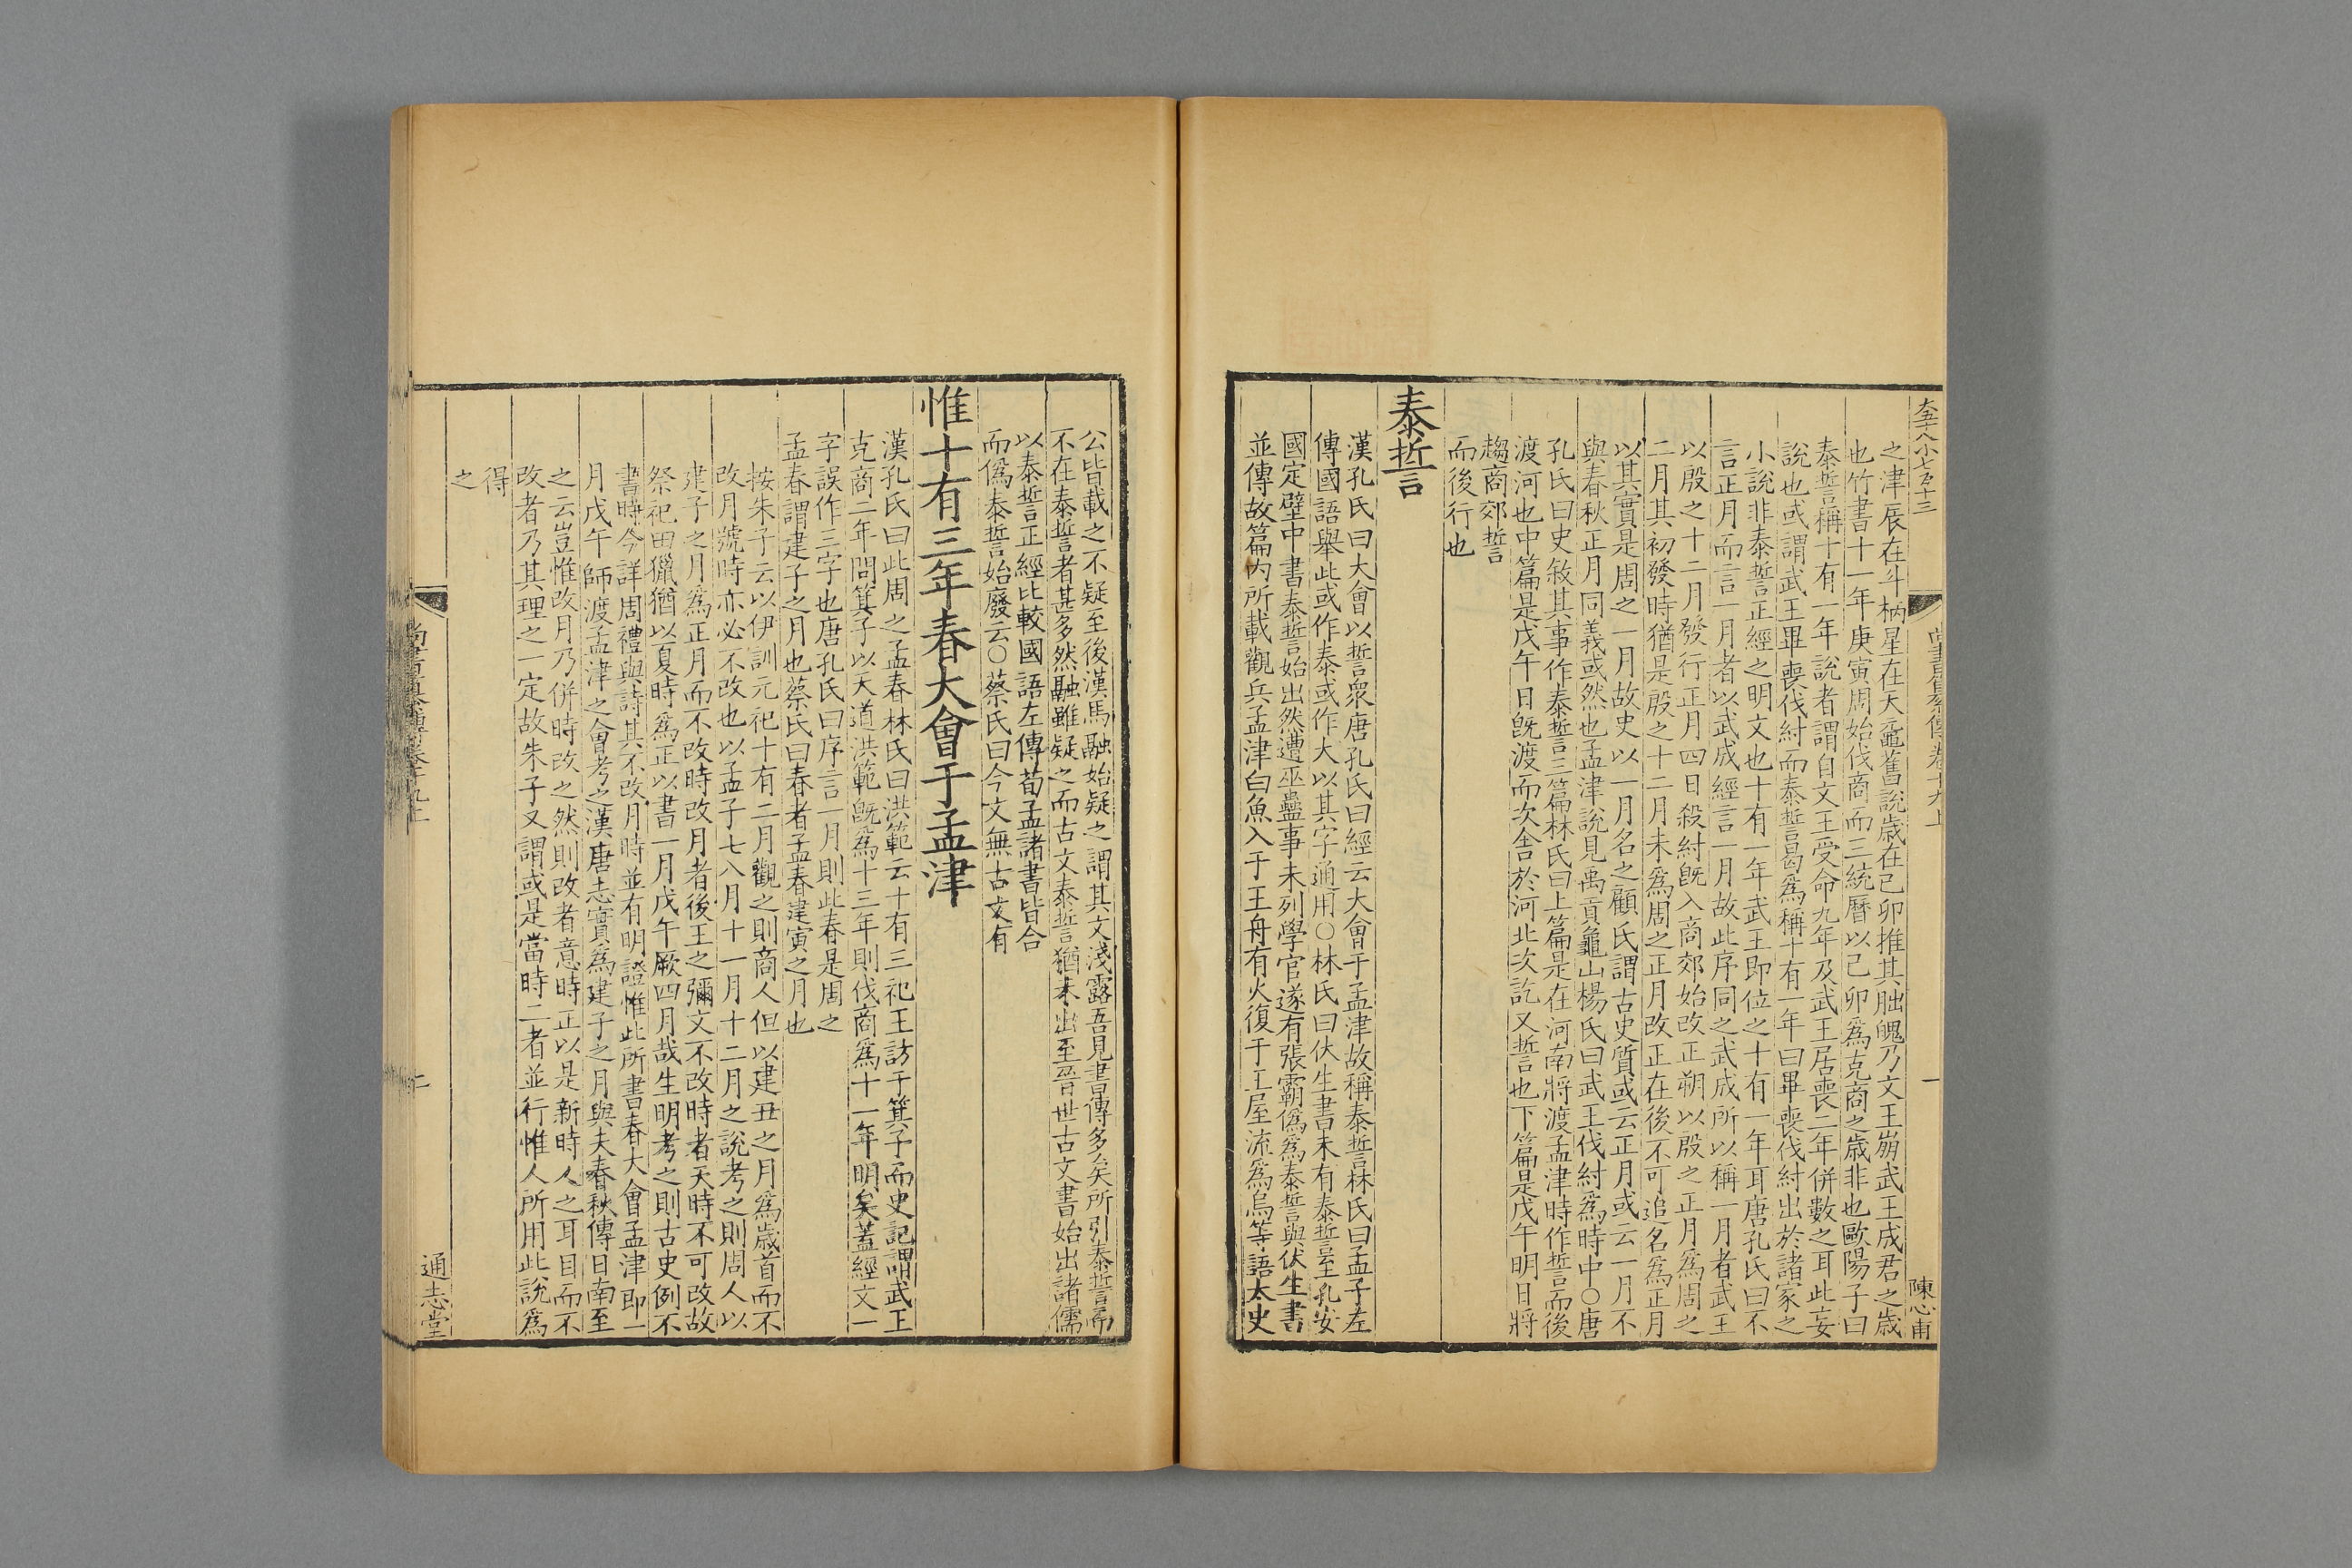 大五十八小七百十三
尚書纂傳卷十九上
一
陳心甫
之津辰在斗柄星在天黿舊說歲在己卯推其朏魄乃文王崩武王成君之歲
也竹書十一年庚寅周始伐商而三統曆以己卯為克商之歲非也歐陽子曰
泰誓稱十有一年說者謂自文王受命九年及武王居喪二年併數之耳此妄
說也或謂武王畢喪伐紂而泰誓曷為稱十有一年曰畢喪伐紂出於諸家之
小說非泰誓正經之明文也十有一年武王即位之十有一年耳唐孔氏曰不
言正月而言一月者以武成經言一月故此序同之武成所以稱一月者武王
以殷之十二月發行正月四日殺紂旣入商郊始改正朔以殷之正月為周之
二月其初發時猶是殷之十二月未為周之正月改正在後不可追名為正月
以其實是周之一月故史以一月名之顧氏謂古史質或云正月或云一月不
與春秋正月同義或然也孟津說見禹貢龜山楊氏曰武王伐紂為時中〇唐
孔氏曰史敘其事作泰誓三篇林氏曰上篇是在河南將渡孟津時作誓而後
渡河也中篇是戊午日旣渡而次舍於河北次訖又誓也下篇是戊午明日將
趨商郊誓
而後行也
泰誓
漢孔氏曰大會以誓衆唐孔氏曰經云大會于孟津故稱泰誓林氏曰孟子左
傳國語舉此或作泰或作大以其字通用〇林氏曰伏生書未有泰誓至孔安
國定壁中書泰誓始出然遭巫蠱事未列學官遂有張霸偽為泰誓與伏生書
並傳故篇内所載觀兵孟津白魚入于王舟有火復于王屋流為烏等語太史
公皆載之不疑至後漢馬融始疑之謂其文淺露吾見書傳多矣所引泰誓而
不在泰誓者甚多然融雖疑之而古文泰誓猶未出至晉世古文書始出諸儒
以泰誓正經比較國語左傳荀孟諸書皆合
而偽泰誓始廢云〇蔡氏曰今文無古文有
惟十有三年春大會于孟津
漢孔氏曰此周之孟春林氏曰洪範云十有三祀王訪于箕子而史記謂武王
克商二年問箕子以天道洪範旣為十三年則伐商為十一年明矣蓋經文一
字誤作三字也唐孔氏曰序言一月則此春是周之
孟春謂建子之月也蔡氏曰春者孟春建寅之月也
按朱子云以伊訓元祀十有二月觀之則商人但以建丑之月為歲首而不
改月號時亦必不改也以孟子七八月十一月十二月之說考之則周人以
建子之月為正月而不改時改月者後王之彌文不改時者天時不可改故
祭祀田獵猶以夏時為正以書一月戊午厥四月哉生明考之則古史例不
書時今詳周禮與詩其不改月時並有明證惟此所書春大會孟津即一
月戊午師渡孟津之會考之漢唐志實為建子之月與夫春秋傳日南至
之云豈惟改月乃併時改之然則改者意時正以是新時人之耳目而不
改者乃其理之一定故朱子又謂或是當時二者並行惟人所用此說為
得
之
尚書纂傳卷十九上
二
通志堂